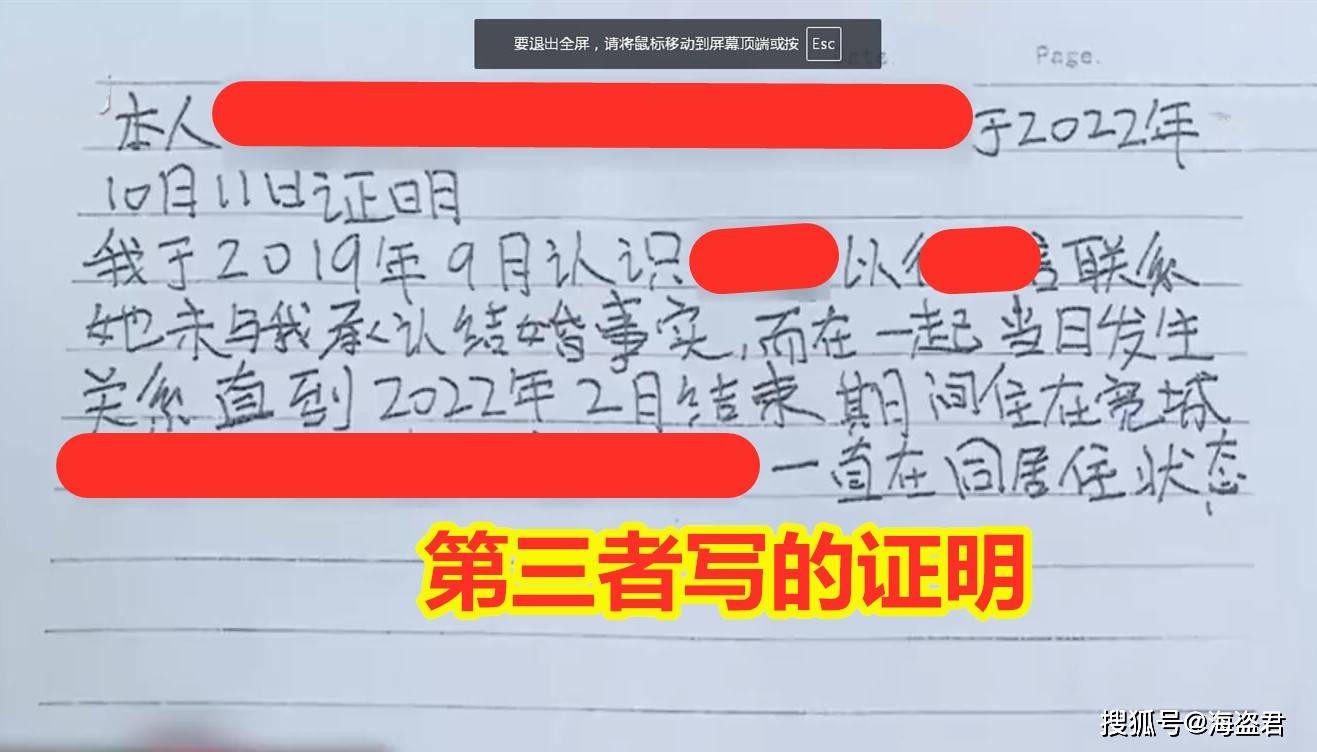 要退出全屏，请将鼠标移动到屏幕顶端或按 Esc
Page.
本人 于2022年
10月11日证明
我于2019年9月认识 以 联系
她未与我承认结婚事实,而在一起当日发生
关系直到2022年2月结束期间住在宽城
一直在同居住状态
第三者写的证明
搜狐号@海盗君